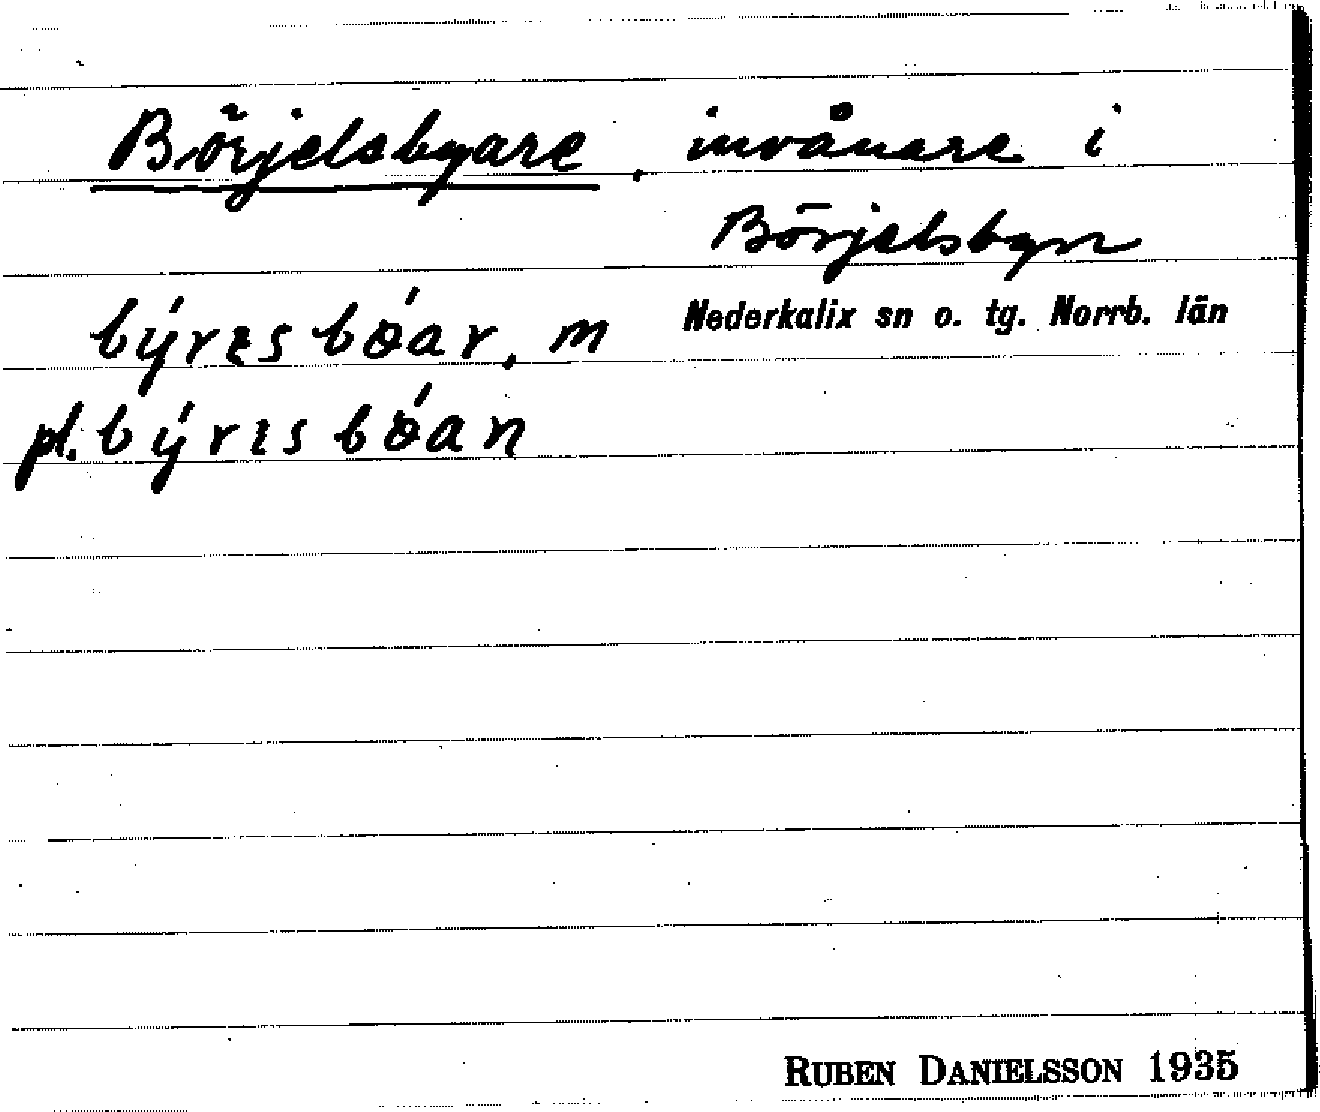 Börjelsbyare, invånare i
Börjelsbyn
Nederkalix sn o. tg. Norrb. län
býrɛsbǿar, m
pl. býrɛsbǿan
RUBEN DANIELSSON 1935